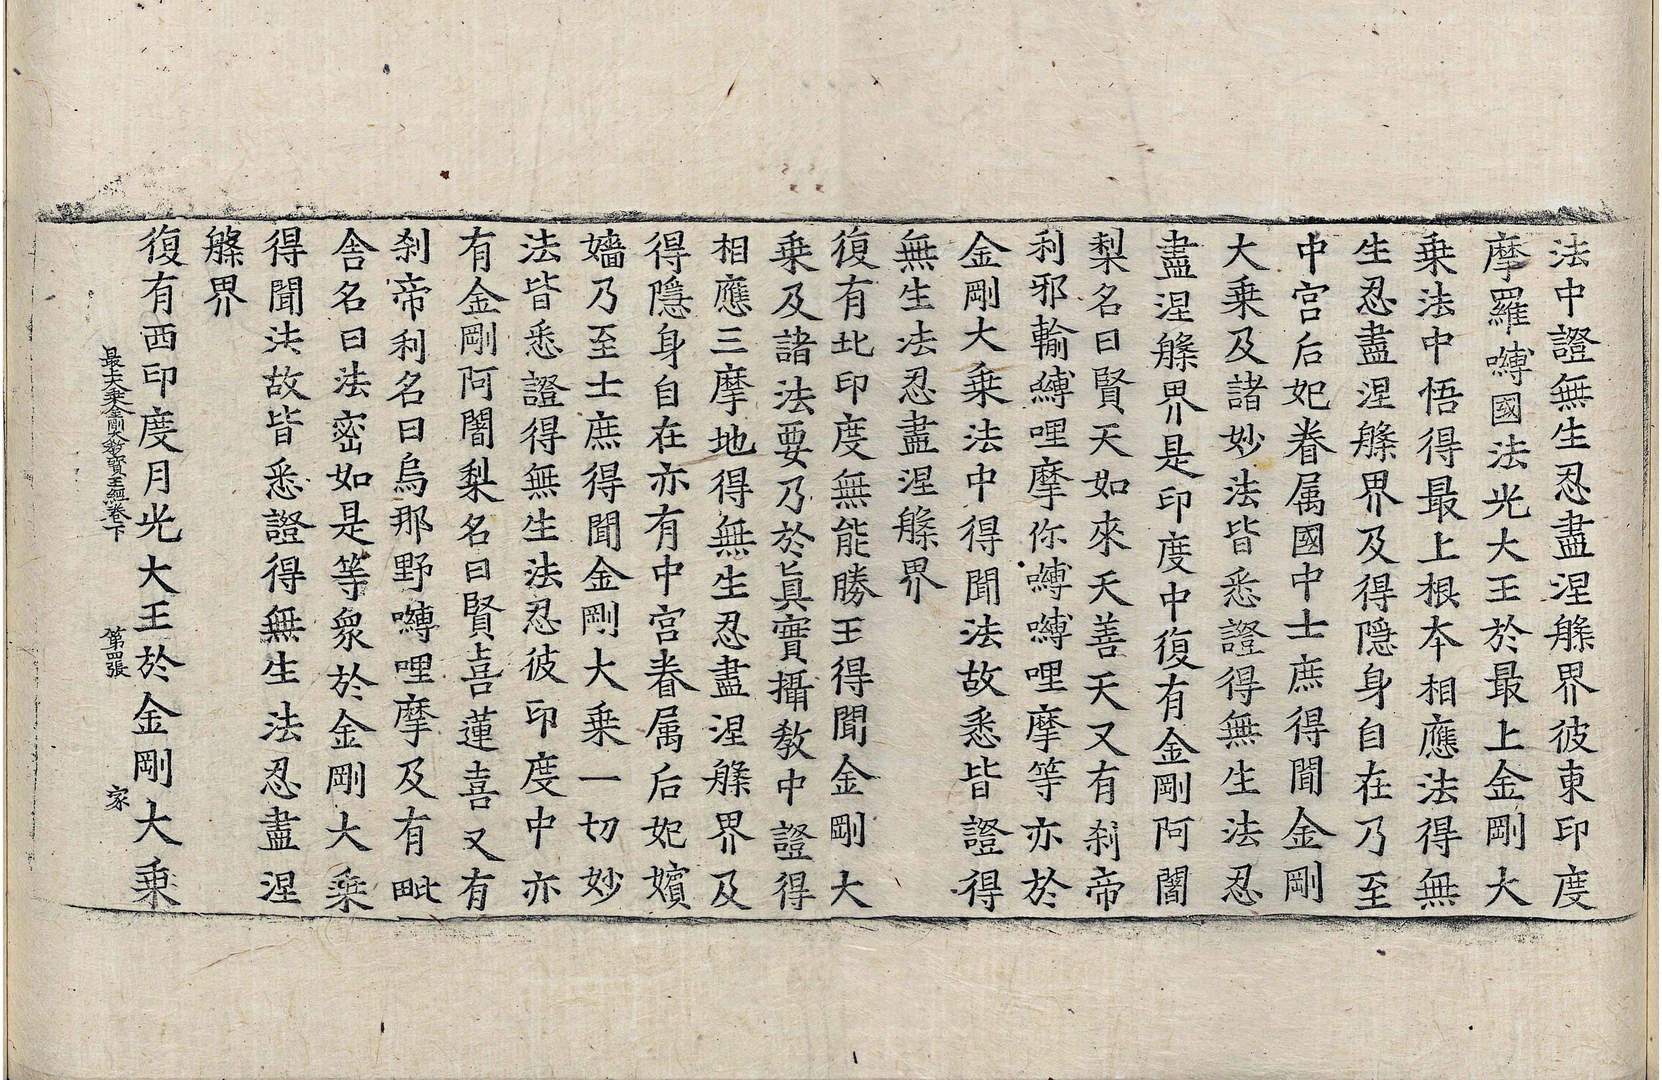 法中證無生忍盡涅槃界彼東印度
摩羅嚩國法光大王於最上金剛大
乗法中悟得最上根本相應法得無
生忍盡涅槃界及得隱身自在乃至
中宮后妃眷属國中士庶得聞金剛
大乗及諸妙法皆悉證得無生法忍
盡涅槃界是印度中復有金剛阿闍
梨名曰賢天如來天善天又有刹帝
利邪輸縛哩摩你嚩嚩哩摩等亦於
金剛大乗法中得聞法故悉皆證得
無生法忍盡涅槃界
復有北印度無能勝王得聞金剛大
乗及諸法要乃於真實攝教中證得
相應三摩地得無生忍盡涅槃界及
得隱身自在亦有中宮眷属后妃嬪
嬙乃至士庶得聞金剛大乗一切妙
法皆悉證得無生法忍彼印度中亦
有金剛阿闍梨名曰賢喜蓮喜又有
刹帝利名曰烏那野嚩哩摩及有毗
舍名曰法密如是等衆於金剛大乗
得聞法故皆悉證得無生法忍盡涅
槃界
復有西印度月光大王於金剛大乗
最上大乗金剛大教寳王經卷下 第四張 家